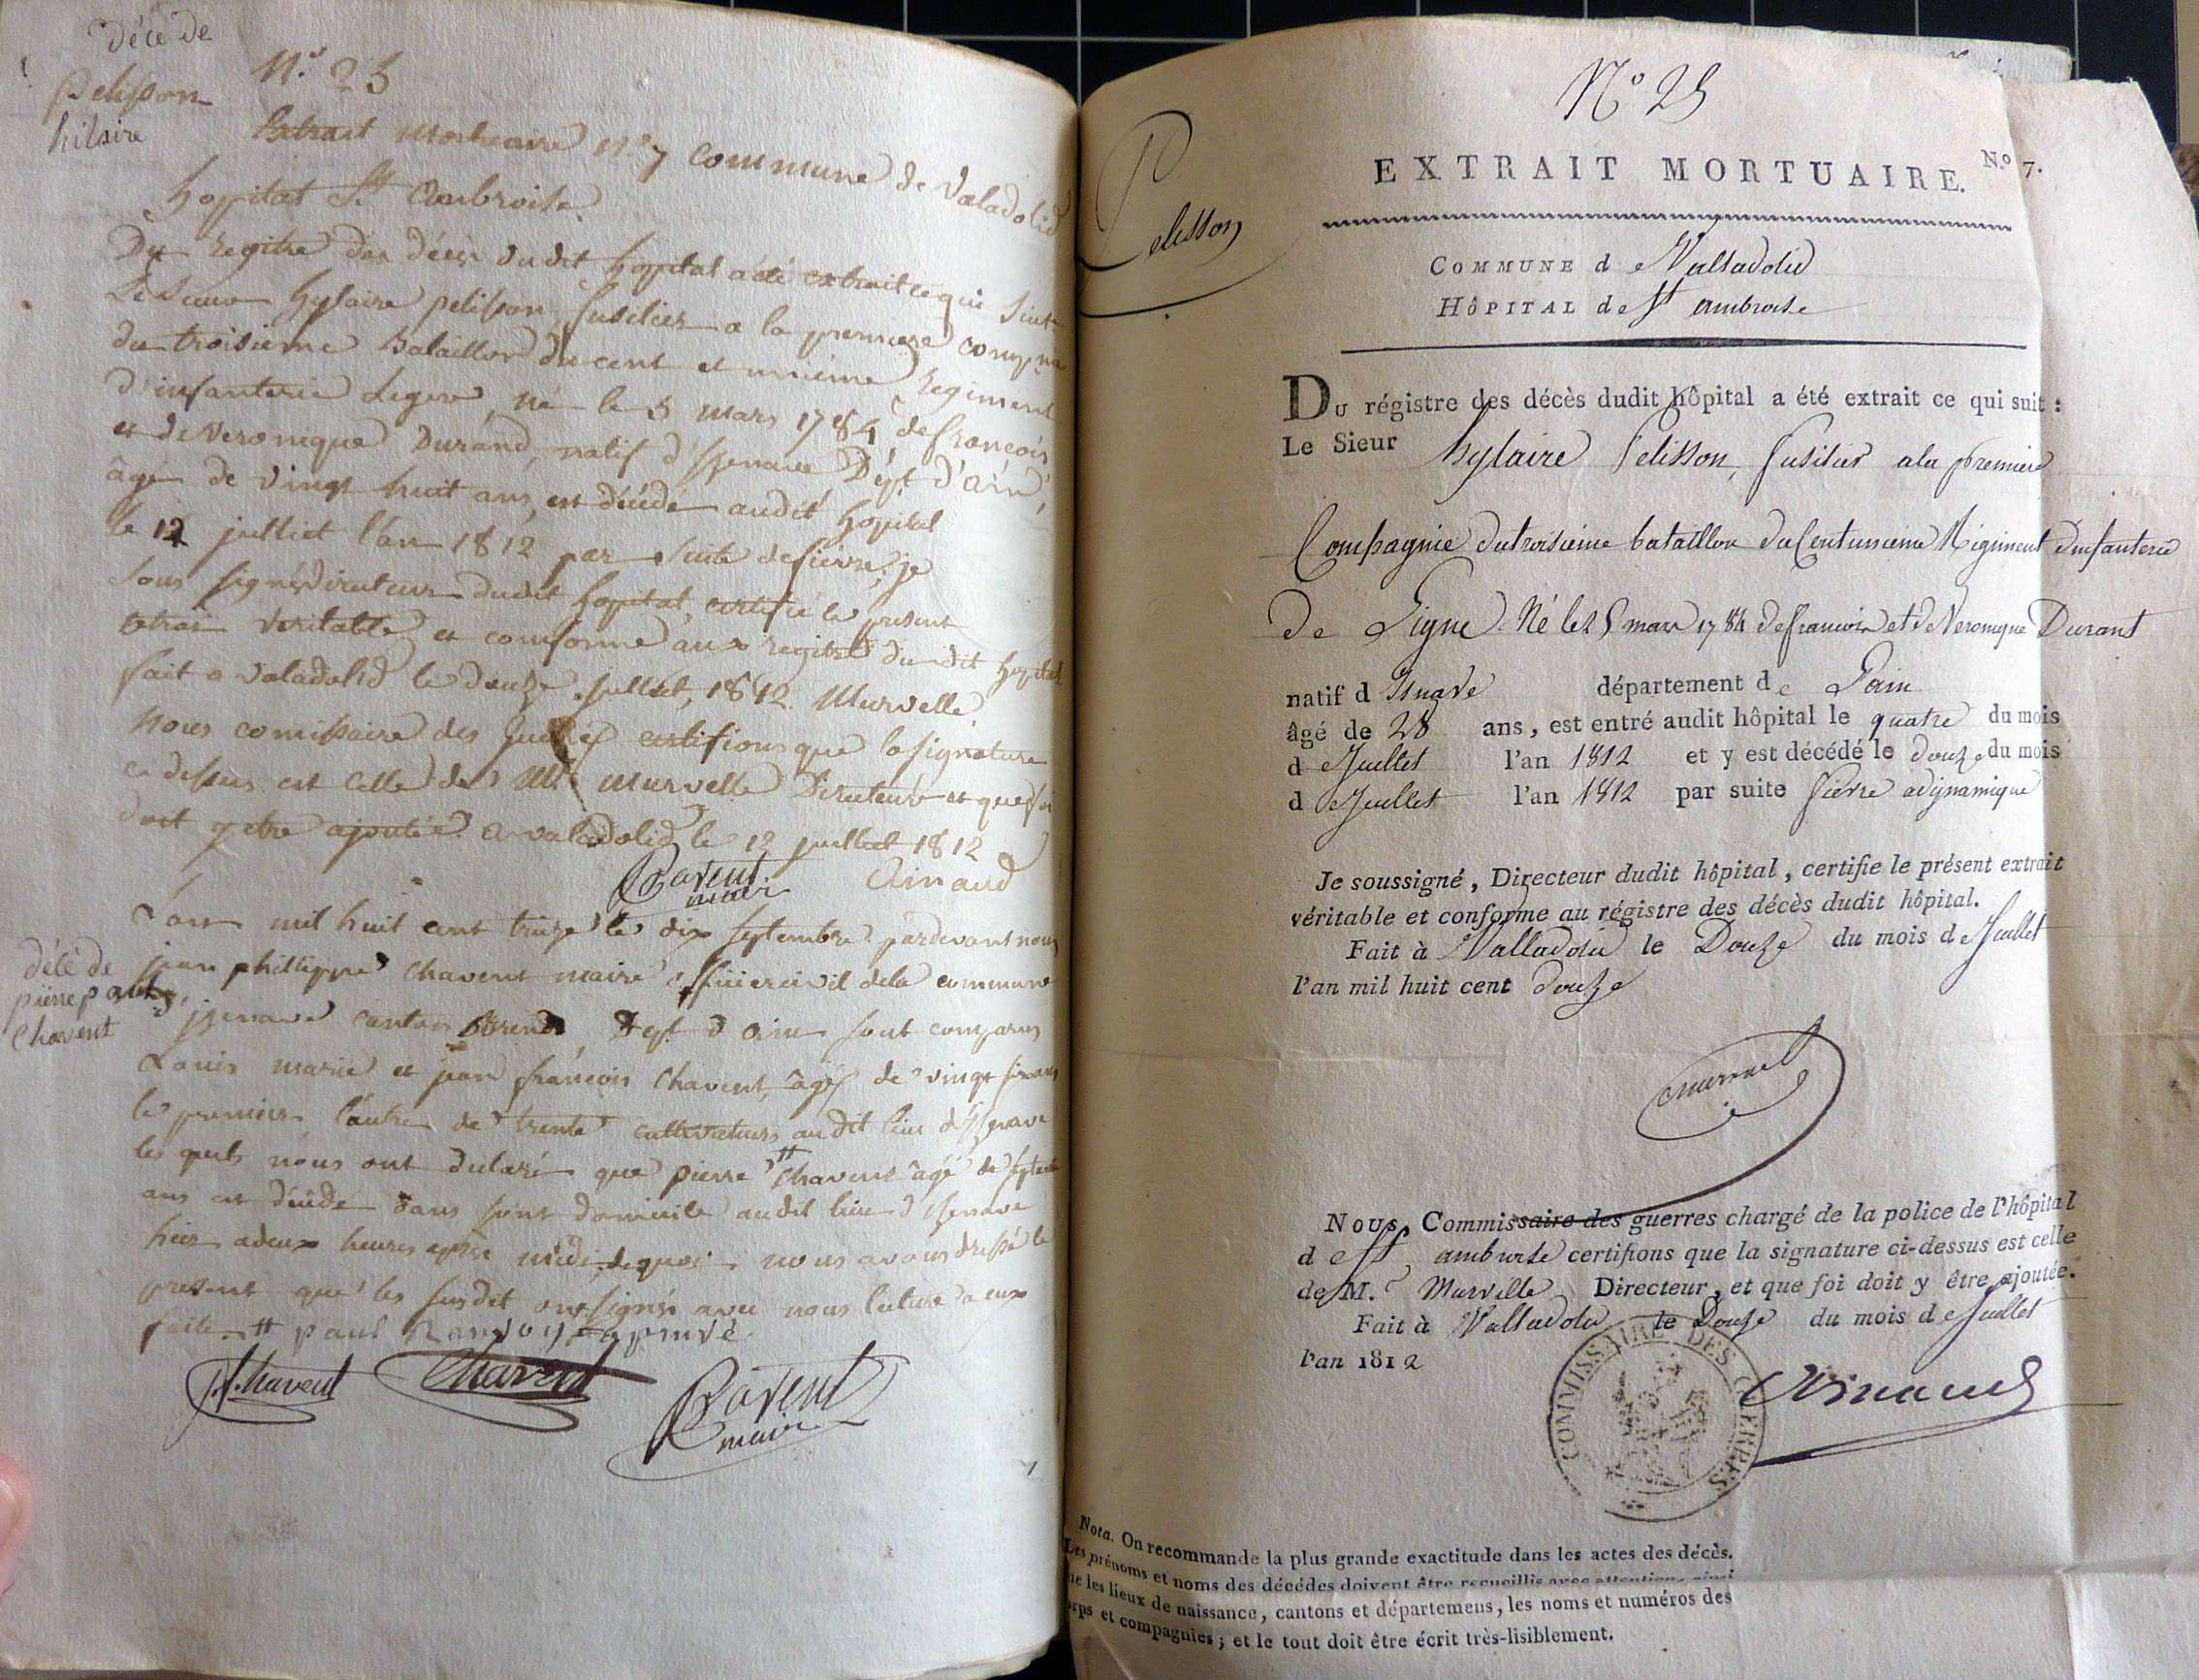 décé de
pelisson
hilaire
N.° 25
Extrait mortuaire n.° 7 commune de Valadolid
hopital S.t Ambroise.
Du registre des décès du dit hopital a été extrait ce qui suit
Le Sieur hylaire pelisson, fusilier a la premiere compagnie
du troisieme Bataillon du cent et unieme Regiment
d'infanterie legere, né le 5 mars 1784, de francois
et de Veronique Durand, natif d'issenave Dépt. d'ain,
âgé de vingt huit ans, est décédé audit hopital
le 12 julliet l'an 1812 par suite de fievre, je
sous signé directeur dudit hopital, certifie le present
veritable et comforme aux registre du dit hopital
fait a Valadolid le douze julliet, 1812. Murvelle.
Nous comissaire des certifions que la signature
ci dessus est celle de M.r Murvelle Directeur et que foi
doit y etre ajoutée. a valadolid le 12 julliet 1812
maire Ainaud
L'an mil huit cent treize le dix septembre pardevant nous
décé de
pierre paul
Chavent
jean philippe chavent maire officier civil de la commune
d' canton Dept d'ain sont comparus
Louis marie et jean francois Chavent, âgés de vingt six ans
le premier l'autre de trente cultivateurs au dit lieu d'issenave
les quels nous ont declaré que pierre # Chavent âgé de
ans est décédé dans sont domicile audit lieu d'issenave
hier a deux heures après midi, de quoi nous avons dressé le
present que les susdit ont signés avec nous lecture a eux
faite. # paul Renvoy approuvé.
Chavent Chavent
maire
Pelisson
N° 25
EXTRAIT MORTUAIRE. N.° 7.
COMMUNE d e Valladolid
HÔPITAL de St ambroise
Du régistre des décès dudit hôpital a été extrait ce qui suit :
Le Sieur hylaire Pelisson, fusilier a la premiere
Compagnie du troisieme bataillon du Centunieme Régiment d'infanterie
de Ligne. Né le 25 mars 1784 de francois et de Veronique Durant
natif d Isnave département de Lain
âgé de 28 ans, est entré audit hôpital le quatre du mois
d e Juillet l'an 1812 et y est décédé le douze du mois
d e Juillet l'an 1812 par suite fievre adynamique
Je soussigné, Directeur dudit hôpital, certifie le présent extrait
véritable et conforme au régistre des décès dudit hôpital.
Fait à Valladolid le Douze du mois d e Juillet
l'an mil huit cent douze
Nous, Commissaire des guerres chargé de la police de l'hôpital
d e St ambroise certifions que la signature ci-dessus est celle
de M.r Murville Directeur, et que foi doit y être ajoutée.
Fait à Valladolid le Douze du mois d e Juillet
l'an 1812
COMMISSAIRE DES GUERRES
Nota. On recommande la plus grande exactitude dans les actes des décès.
Les prénoms et noms des décédés doivent être recueillis avec attention, ainsi
que les lieux de naissance, cantons et départemens, les noms et numéros des
corps et compagnies ; et le tout doit être écrit très-lisiblement.